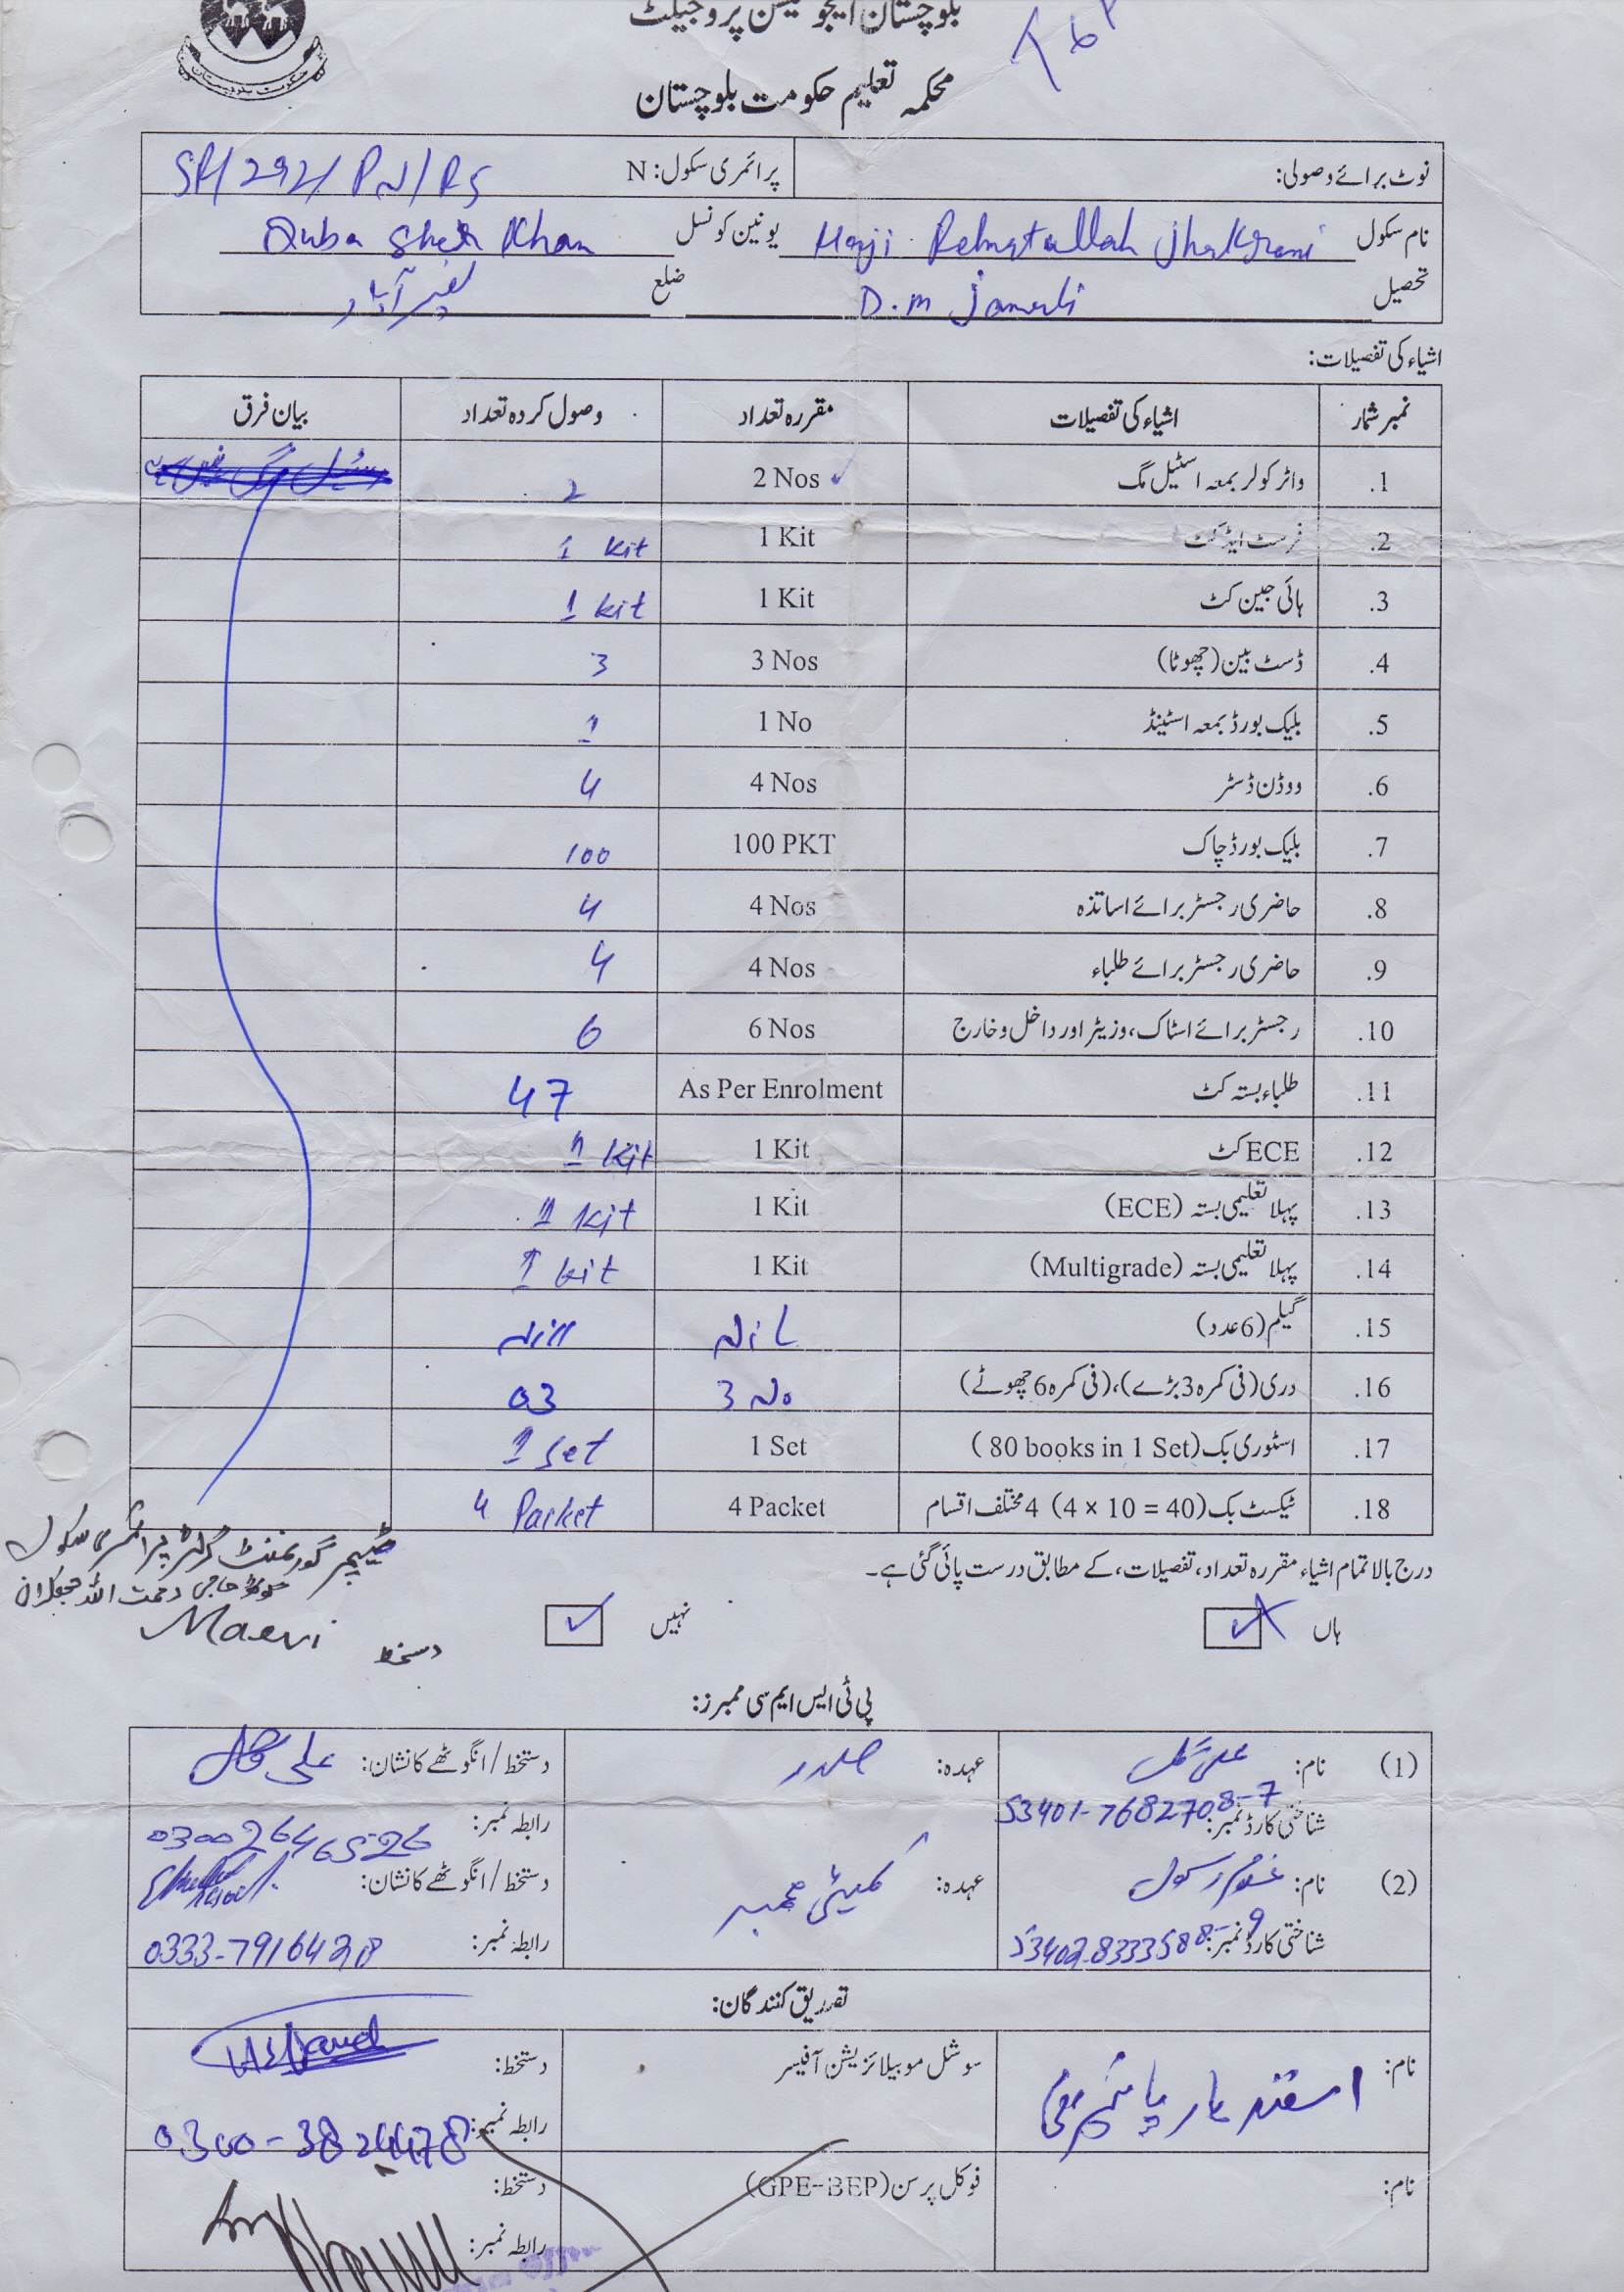 بلوچستان ایجوکیشن پروجیکٹ
محکمہ تعلیم حکومت بلوچستان
حکومت بلوچستان
نوٹ برائے وصولی: پرائمری سکول: N SP/292/PN/RS
نام سکول Haji Rehmatullah Jhakrani یونین کونسل Quba Sher Khan
تحصیل D.M Jamali ضلع نصیر آباد
اشیاء کی تفصیلات:
نمبر شمار اشیاء کی تفصیلات مقررہ تعداد وصول کردہ تعداد بیان فرق
1. واٹر کولر بمعہ اسٹیل مگ 2 Nos ✓ 2
2. فرسٹ ایڈ کٹ 1 Kit 1 Kit
3. ہائی جین کٹ 1 Kit 1 kit
4. ڈسٹ بین (چھوٹا) 3 Nos 3
5. بلیک بورڈ بمعہ اسٹینڈ 1 No 1
6. ووڈن ڈسٹر 4 Nos 4
7. بلیک بورڈ چاک 100 PKT 100
8. حاضری رجسٹر برائے اساتذہ 4 Nos 4
9. حاضری رجسٹر برائے طلباء 4 Nos 4
10. رجسٹر برائے اسٹاک، وزیٹر اور داخل و خارج 6 Nos 6
11. طلباء بستہ کٹ As Per Enrolment 47
12. ECE کٹ 1 Kit 1 Kit
13. پہلا تعلیمی بستہ (ECE) 1 Kit 1 Kit
14. پہلا تعلیمی بستہ (Multigrade) 1 Kit 1 kit
15. گیلم (6 عدد) Nil Nill
16. دری (فی کمرہ 3 بڑے)، (فی کمرہ 6 چھوٹے) 3 No 03
17. اسٹوری بک (80 books in 1 Set) 1 Set 1 Set
18. ٹیکسٹ بک (4 × 10 = 40) 4 مختلف اقسام 4 Packet 4 Packet
ٹیچر گورنمنٹ گرلز پرائمری سکول
گوٹھ حاجی رحمت اللہ جھکرانی
درج بالا تمام اشیاء مقررہ تعداد، تفصیلات، کے مطابق درست پائی گئی ہے۔
ہاں ✓ نہیں ✓
دستخط
پی ٹی ایس ایم سی ممبرز:
(1) نام: علی گل عہدہ: صدر دستخط / انگوٹھے کا نشان: علی گل
شناختی کارڈ نمبر: 53401-7682708-7 رابطہ نمبر: 03002646526
(2) نام: غلام رسول عہدہ: کمیٹی ممبر دستخط / انگوٹھے کا نشان:
شناختی کارڈ نمبر: 53402-8333588-9 رابطہ نمبر: 0333-7916428
تصدیق کنندگان:
نام: اسفند یار سوشل موبیلائزیشن آفیسر دستخط:
رابطہ نمبر: 0300-3824478
نام: فوکل پرسن (GPE-BEP) دستخط:
رابطہ نمبر: